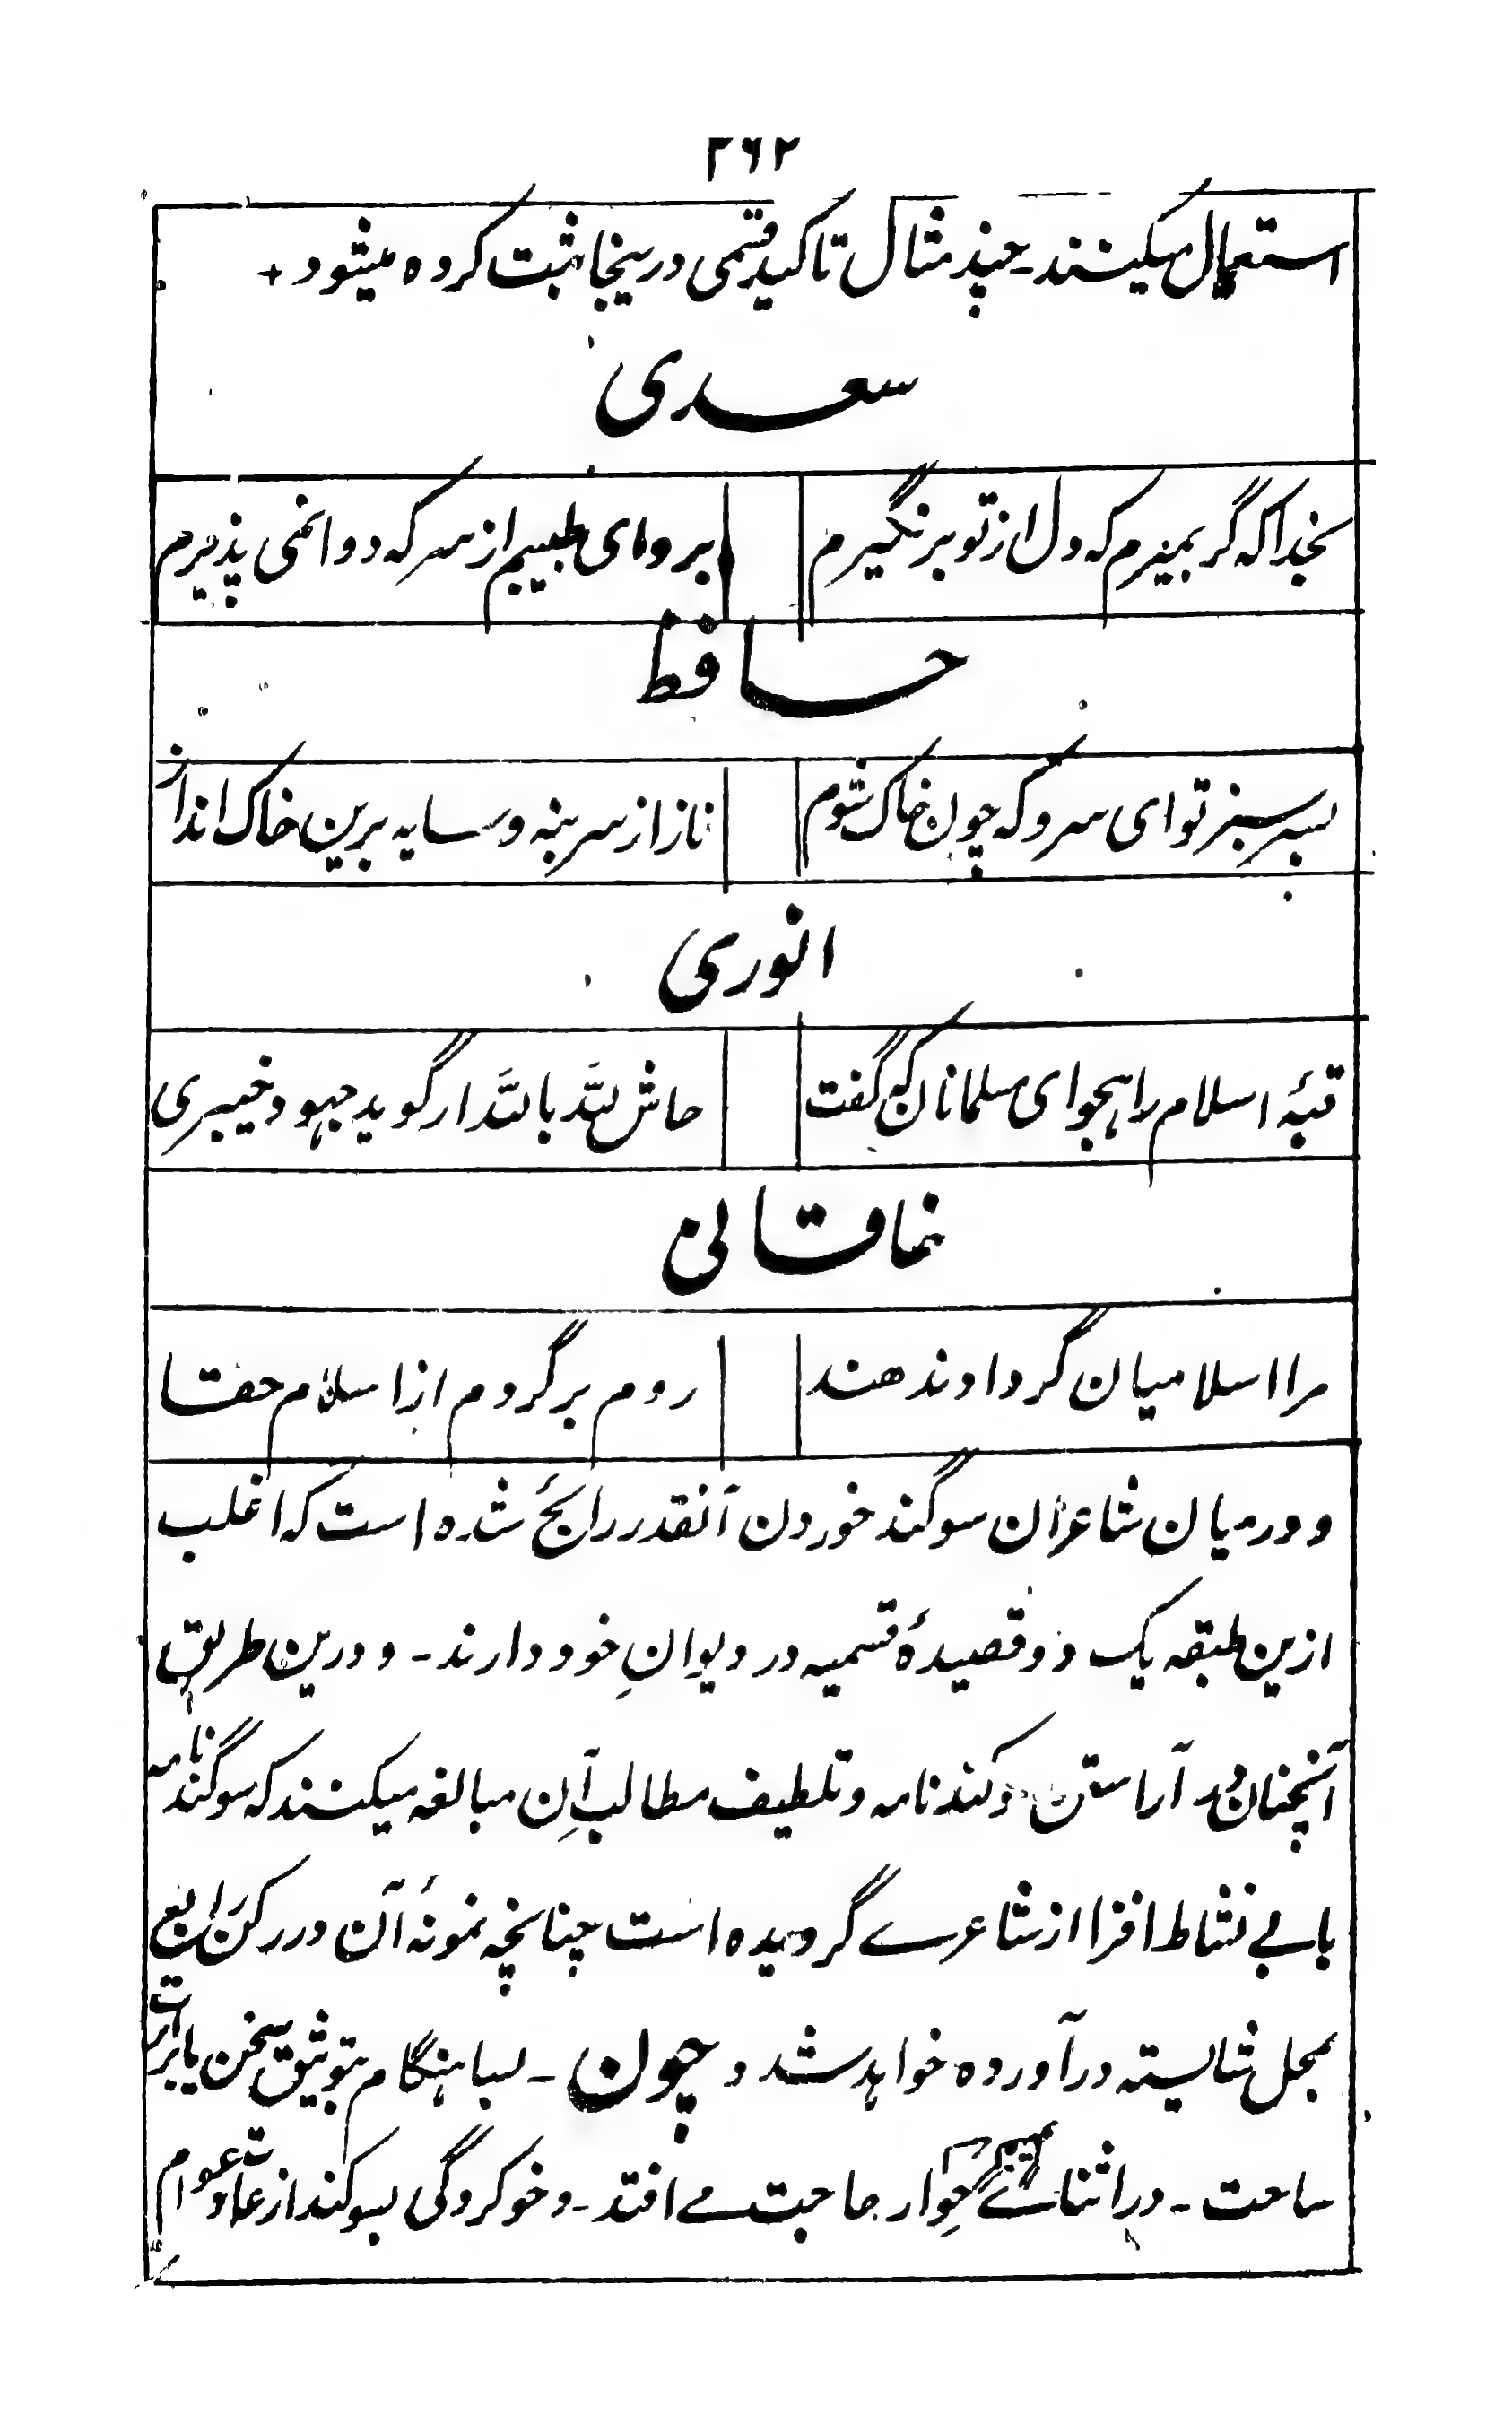 ۲۶۲
استعمال میکنند۔ چند مثال تاکید قسمی درینجا ثبت کرده میشود +
سعدی
بخدا که گر بمیرم که دل از تو برنگیرم برو ای طبیبم از سر که دوا نمی پذیرم
حافظ
بسر سبز تو ای سرو که چون خاک شوم ناز از سر بنه و سایه برین خاک انداز
انوری
قبهٔ اسلام را هجو ای مسلمانان که گفت حاش للّه بالله ار گوید جهود خیبری
خاقانی
مرا اسلامیان گر داد ندهند روم برگردم از اسلام حقا
و در میان شاعران سوگند خوردن آنقدر رائج شده است که اغلب
ازین طبقه یک دو قصیدهٔ قسمیه در دیوانِ خود دارند۔ و درین طریق
آنچنان در آراستن سوگند نامه و تلطیف مطالب آن مبالغه میکنند که سوگند نامه
بابے نشاط افزا از شاعرے گردیده است چنانچه نمونهٔ آن در رکن رابع
بمحل شایسته درآورده خواهد شد و چون۔ بسا هنگام بتوثیق سخن یا برائت
ساحت۔ در اثنائے حِوار حاجت مے افتد۔ و خوکردگی بسوگند از عادت عوام